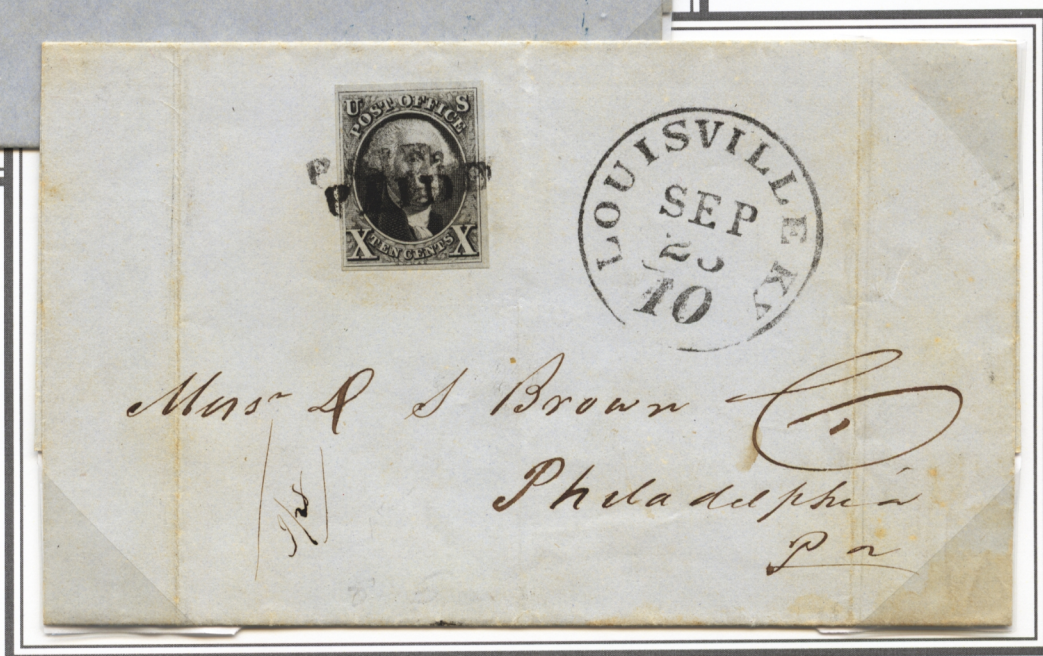 U S
POST OFFICE
PAID
X TEN CENTS X
LOUISVILLE KY
SEP
10
Messr D S Brown Co
Philadelphia
Pa